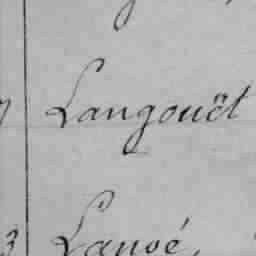 Langouët
Lanoé,